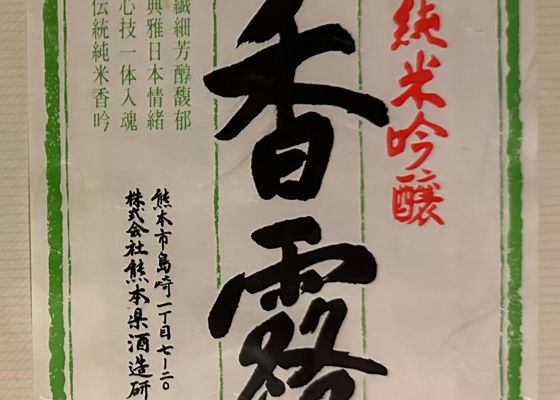 純米吟醸
香露
繊細芳醇馥郁
典雅日本情緒
心技一体入魂
伝統純米香吟
熊本市島崎一丁目七ー二〇
株式会社熊本県酒造研